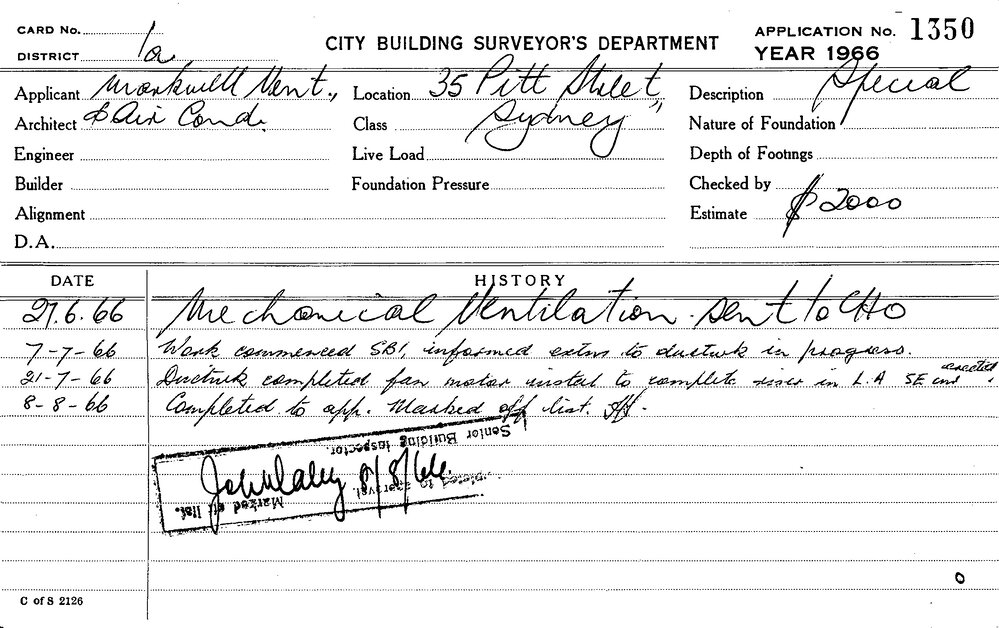 CARD No.
DISTRICT 1a
CITY BUILDING SURVEYOR'S DEPARTMENT
APPLICATION No. 1350
YEAR 1966
Applicant Markwell Vent.,
Location 35 Pitt Street,
Description Special
Architect & Air Cond.
Class Sydney
Nature of Foundation
Engineer
Live Load
Depth of Footings
Builder
Foundation Pressure
Checked by
Alignment
Estimate $2000
D.A.
DATE HISTORY
27.6.66 Mechanical Ventilation. sent to CHO
7-7-66 Work commenced SBI, informed extns to ductwk in progress.
21-7-66 Ductwk completed fan motor instal to complete riser in L.A SE end erected
8-8-66 Completed to app. Marked off list.
Senior Building Inspector.
8/8/66.
to approval.
Marked off list.
C of S 2126